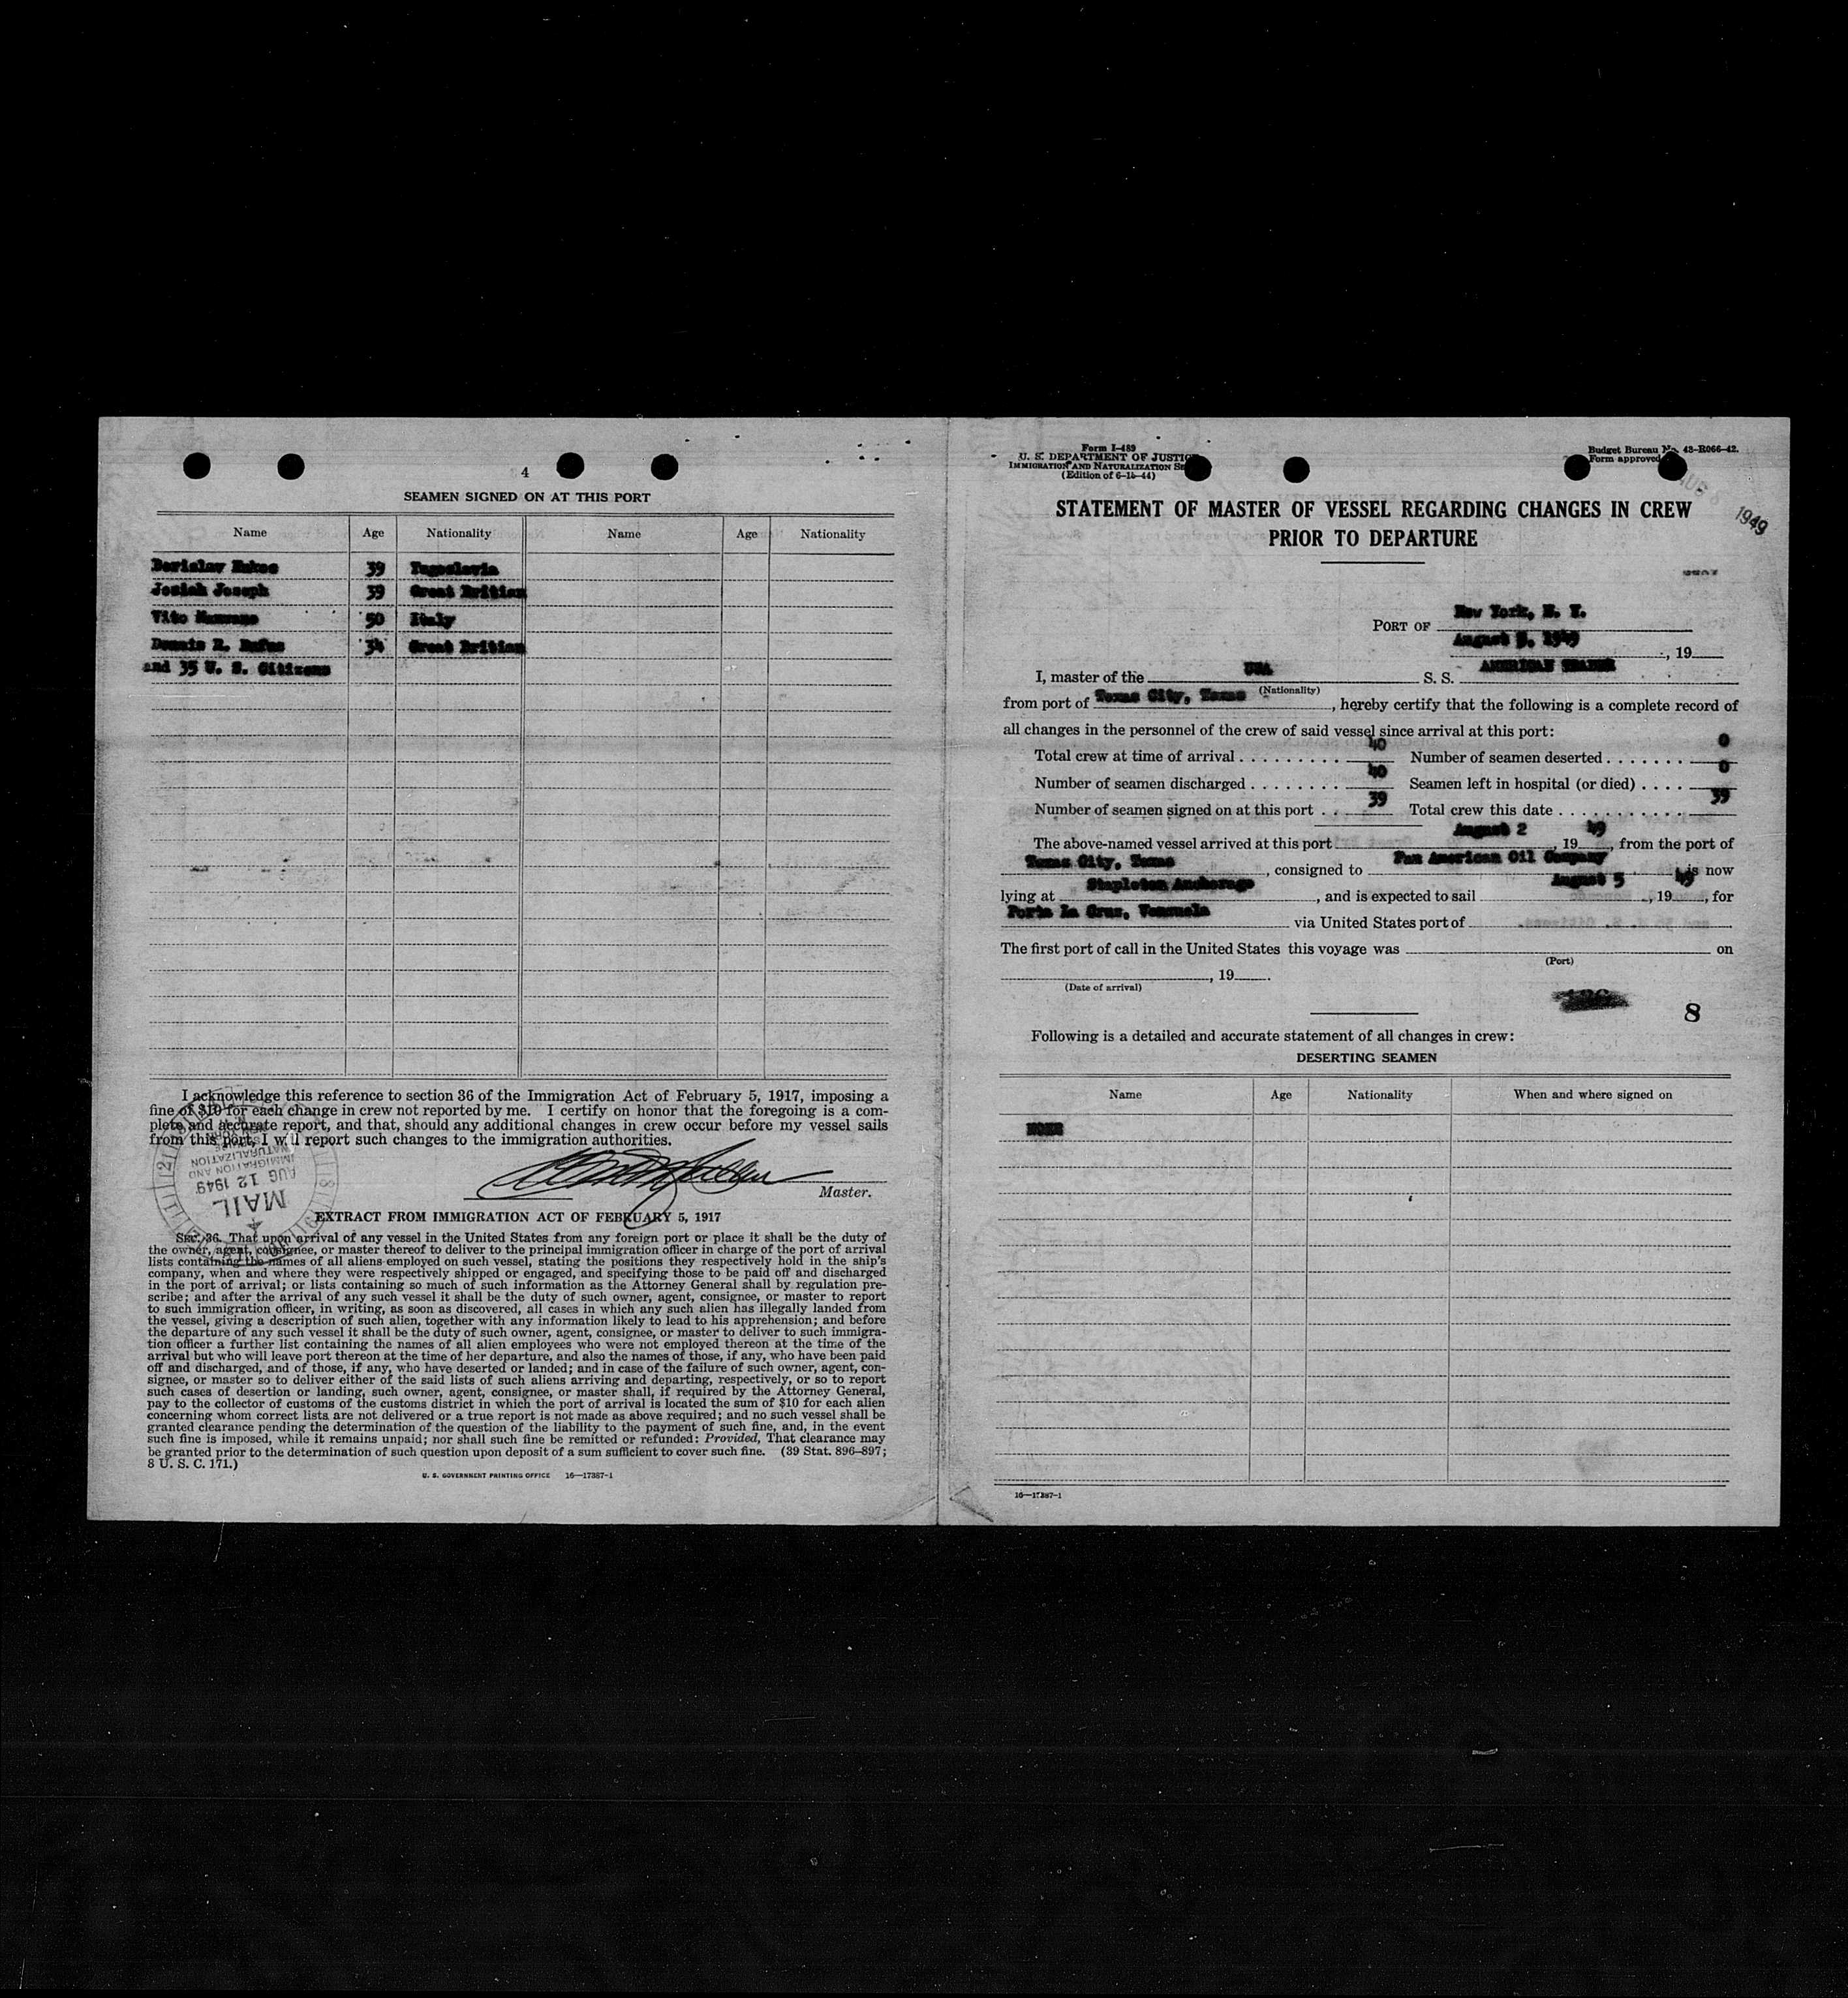 4
SEAMEN SIGNED ON AT THIS PORT
Name Age Nationality Name Age Nationality
Borislav 39 Yugoslavia
Josiah Joseph 39 Great Britian
Vito 50 Italy
Dennis R. Rufus 34 Great Britian
and 35 U. S. Citizens
I acknowledge this reference to section 36 of the Immigration Act of February 5, 1917, imposing a
fine of $10 for each change in crew not reported by me. I certify on honor that the foregoing is a com-
plete and accurate report, and that, should any additional changes in crew occur before my vessel sails
from this port, I will report such changes to the immigration authorities.
Master.
MAIL
AUG 12 1949
IMMIGRATION AND
NATURALIZATION
EXTRACT FROM IMMIGRATION ACT OF FEBRUARY 5, 1917
SEC. 36. That upon arrival of any vessel in the United States from any foreign port or place it shall be the duty of
the owner, agent, consignee, or master thereof to deliver to the principal immigration officer in charge of the port of arrival
lists containing the names of all aliens employed on such vessel, stating the positions they respectively hold in the ship's
company, when and where they were respectively shipped or engaged, and specifying those to be paid off and discharged
in the port of arrival; or lists containing so much of such information as the Attorney General shall by regulation pre-
scribe; and after the arrival of any such vessel it shall be the duty of such owner, agent, consignee, or master to report
to such immigration officer, in writing, as soon as discovered, all cases in which any such alien has illegally landed from
the vessel, giving a description of such alien, together with any information likely to lead to his apprehension; and before
the departure of any such vessel it shall be the duty of such owner, agent, consignee, or master to deliver to such immigra-
tion officer a further list containing the names of all alien employees who were not employed thereon at the time of the
arrival but who will leave port thereon at the time of her departure, and also the names of those, if any, who have been paid
off and discharged, and of those, if any, who have deserted or landed; and in case of the failure of such owner, agent, con-
signee, or master so to deliver either of the said lists of such aliens arriving and departing, respectively, or so to report
such cases of desertion or landing, such owner, agent, consignee, or master shall, if required by the Attorney General,
pay to the collector of customs of the customs district in which the port of arrival is located the sum of $10 for each alien
concerning whom correct lists are not delivered or a true report is not made as above required; and no such vessel shall be
granted clearance pending the determination of the question of the liability to the payment of such fine, and, in the event
such fine is imposed, while it remains unpaid; nor shall such fine be remitted or refunded: Provided, That clearance may
be granted prior to the determination of such question upon deposit of a sum sufficient to cover such fine. (39 Stat. 896–897;
8 U. S. C. 171.)
U. S. GOVERNMENT PRINTING OFFICE 16—17387-1
Form I-489
U. S. DEPARTMENT OF JUSTICE
IMMIGRATION AND NATURALIZATION
(Edition of 6-15-44)
Budget Bureau No. 43-R066-42.
Form approved
AUG 8 1949
STATEMENT OF MASTER OF VESSEL REGARDING CHANGES IN CREW
PRIOR TO DEPARTURE
PORT OF New York, N. Y.
August 5, 1949, 19
I, master of the USA S. S. AMERICAN TRADER
(Nationality)
from port of Texas City, Texas, hereby certify that the following is a complete record of
all changes in the personnel of the crew of said vessel since arrival at this port:
Total crew at time of arrival 40 Number of seamen deserted 0
Number of seamen discharged 40 Seamen left in hospital (or died) 0
Number of seamen signed on at this port 39 Total crew this date 39
The above-named vessel arrived at this port August 2, 1949, from the port of
Texas City, Texas, consigned to Pan American Oil Company is now
lying at Stapleton Anchorage, and is expected to sail August 5, 1949, for
Porto La Cruz, Venzuela via United States port of
The first port of call in the United States this voyage was on
(Port)
, 19
(Date of arrival)
8
Following is a detailed and accurate statement of all changes in crew:
DESERTING SEAMEN
Name Age Nationality When and where signed on
NONE
16—17387-1